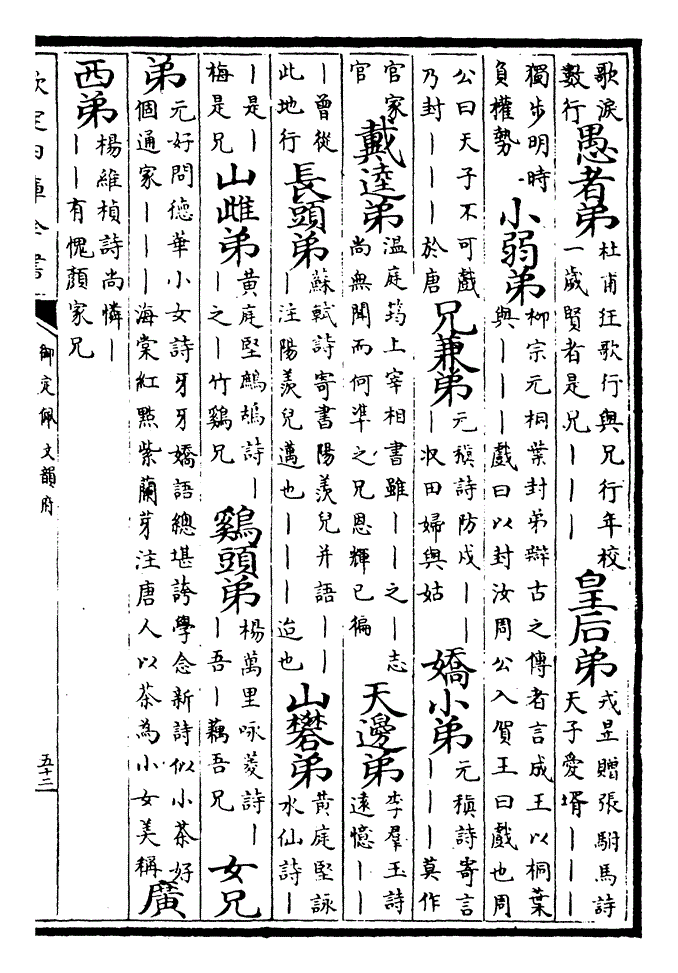 歌淚
數行
愚者弟
杜甫狂歌行與兄行年校
一歲賢者是兄｜｜｜
皇后弟
戎昱贈張駙馬詩
天子愛壻｜｜｜
獨步明時
負權勢
小弱弟
柳宗元桐葉封弟辯古之傳者言成王以桐葉
與｜｜｜戲曰以封汝周公入賀王曰戲也周
公曰天子不可戲
乃封｜｜｜於唐
兄兼弟
元稹詩防戍｜｜
｜收田婦與姑
嬌小弟
元稹詩寄言
｜｜｜莫作
官家
官
戴逵弟
溫庭筠上宰相書雖｜｜之｜志
尚無聞而何準之兄恩輝已徧
天邊弟
李羣玉詩
遠憶｜｜
｜曾從
此地行
長頭弟
蘇軾詩寄書陽羨兒并語｜｜
｜注陽羨兒邁也｜｜｜迨也
山礬弟
黃庭堅詠
水仙詩｜
｜是｜
梅是兄
山雌弟
黃庭堅鷓鴣詩｜
｜之｜竹鷄兄
鷄頭弟
楊萬里咏菱詩｜
｜吾｜藕吾兄
女兄
弟
元好問德華小女詩牙牙嬌語總堪誇學念新詩似小茶好
個通家｜｜｜海棠紅點紫蘭芽注唐人以茶為小女美稱
廣
西弟
楊維楨詩尚憐｜
｜｜有愧顏家兄
欽定四庫全書
御定佩文韻府
五十二